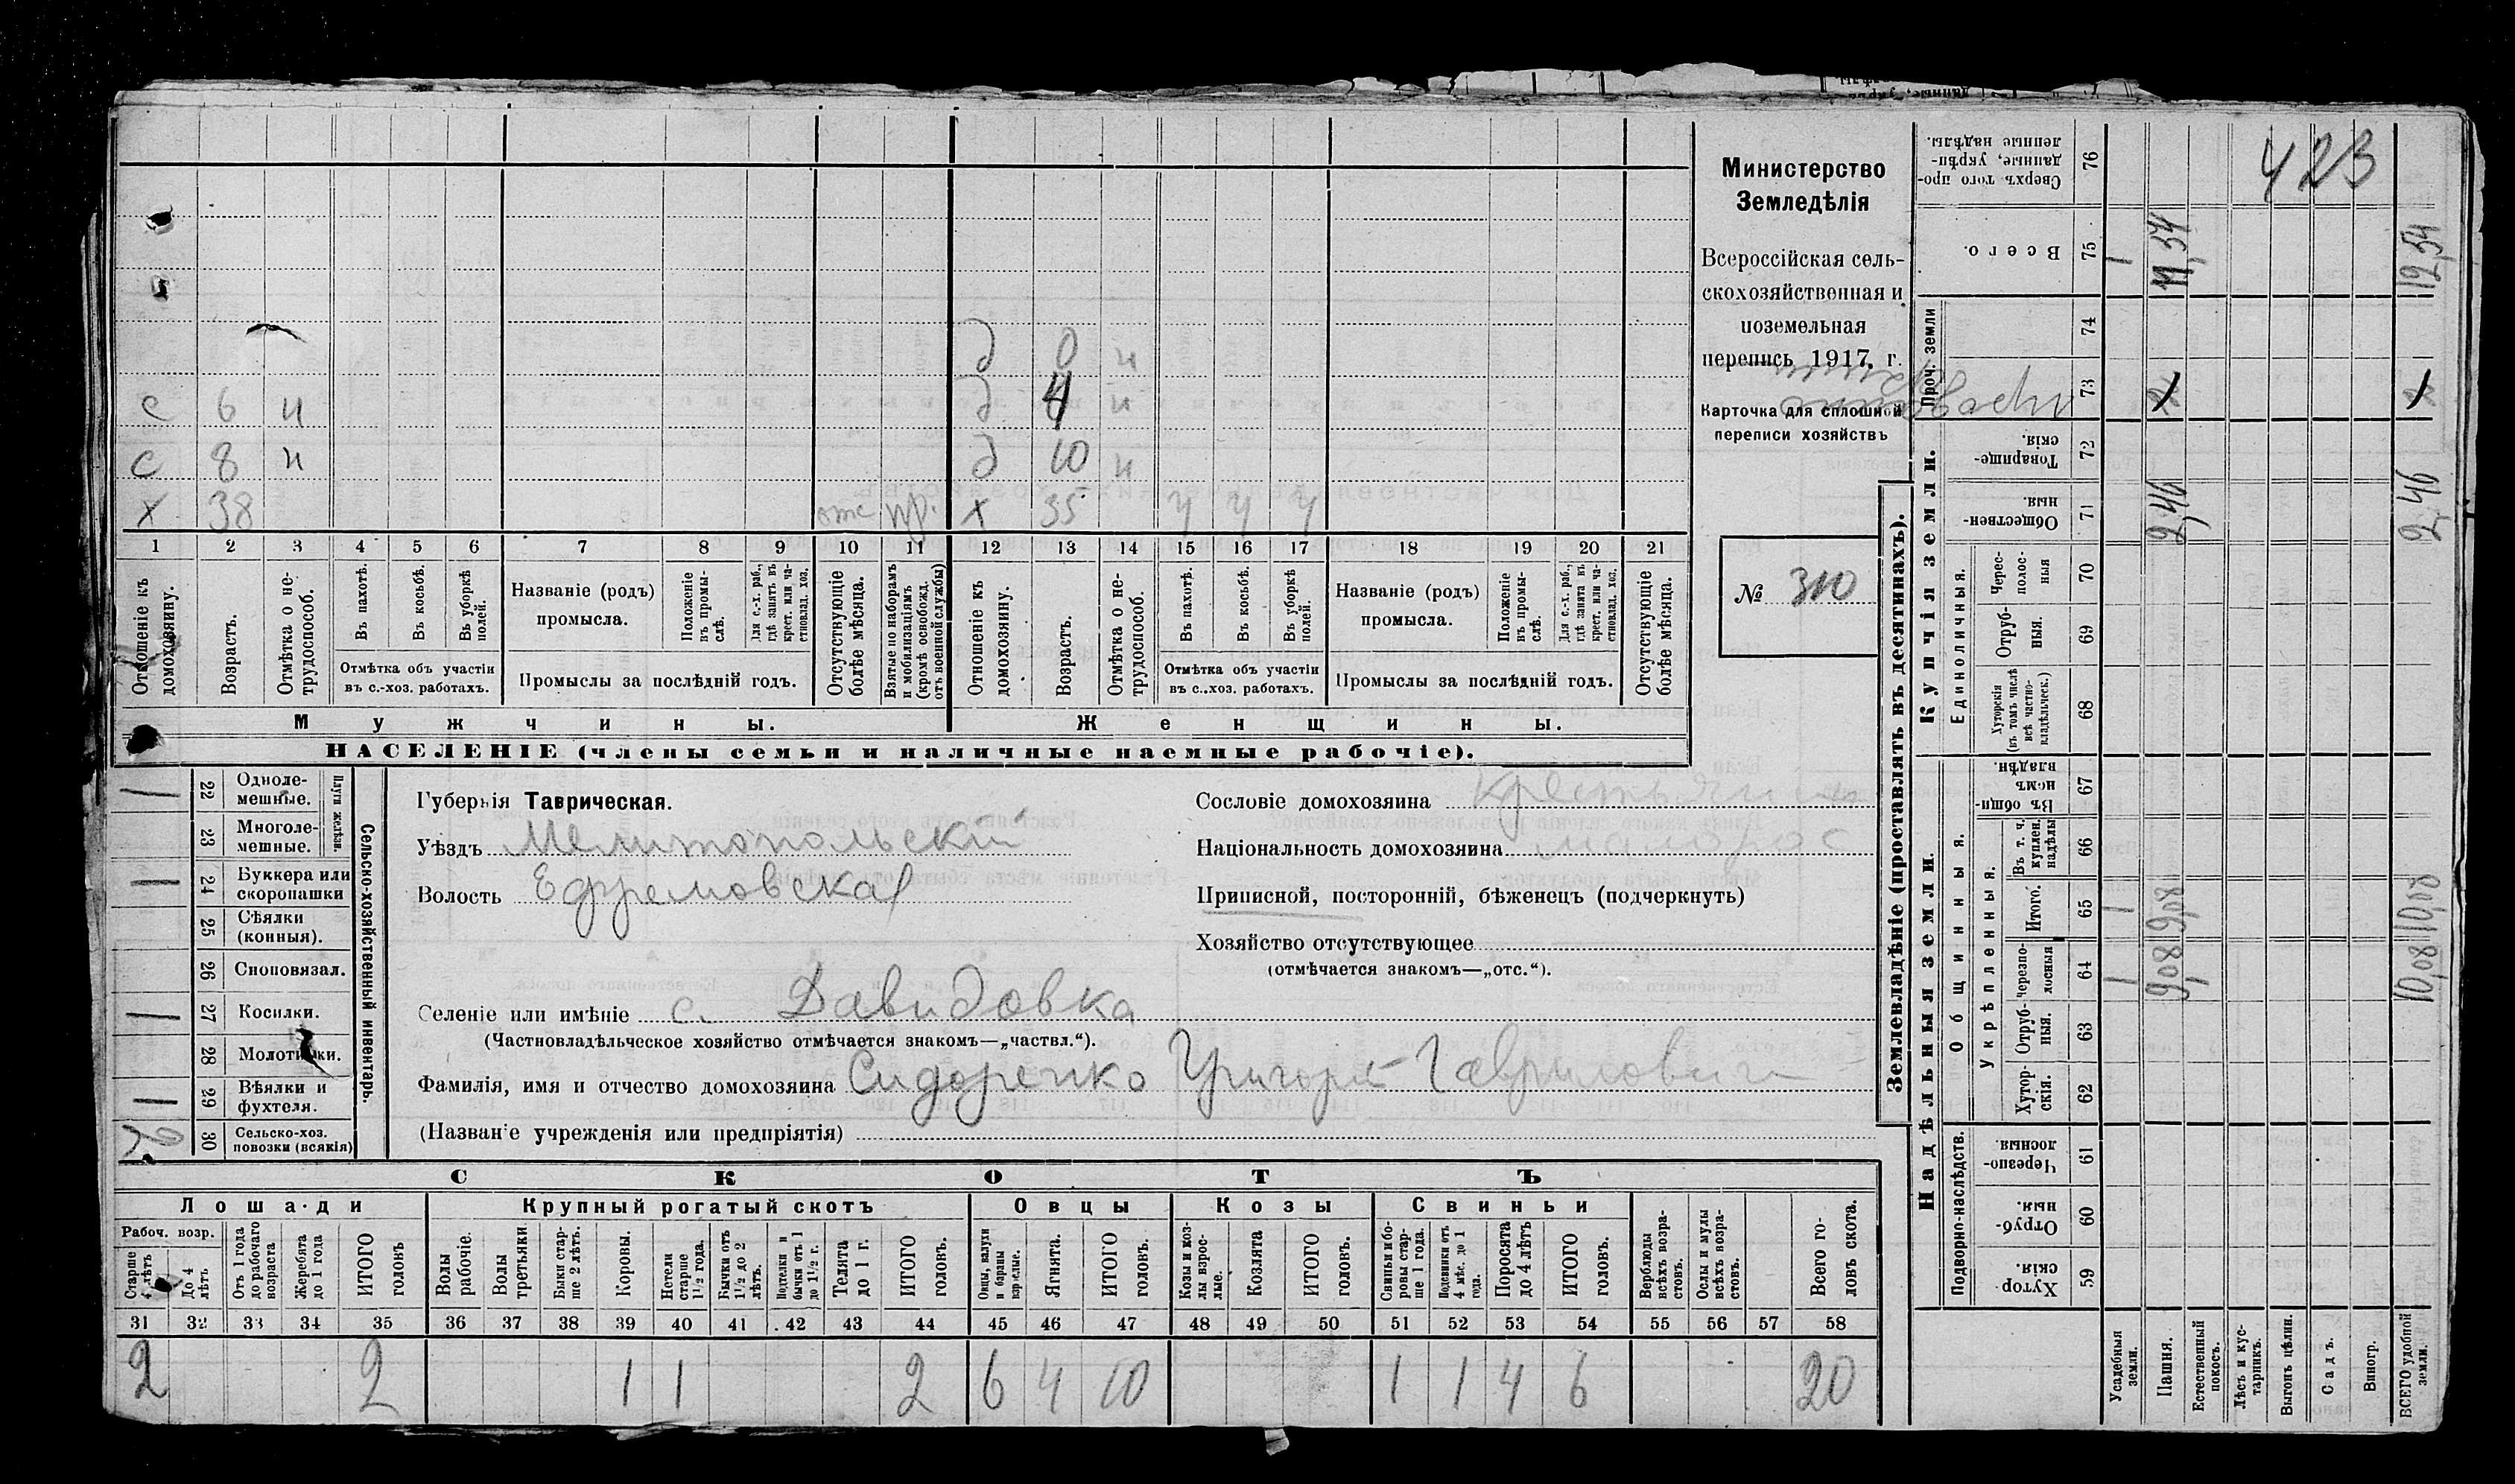 423
Министерство
Земледѣлія
Всероссійская сель-
скохозяйственная и
поземельная
перепись 1917 г.
Карточка для сплошной
переписи хозяйствъ
№ 310
д 0 н
с 6 н д 4 н
с 8 н д 10 н
х 38 отс пр. х 35 у у у
1 2 3 4 5 6 7 8 9 10 11 12 13 14 15 16 17 18 19 20 21
Отношеніе къ домохозяину.
Возрастъ.
Отмѣтка о не-трудоспособ.
Въ пахотѣ.
Въ косьбѣ.
Въ уборкѣ полей.
Отмѣтка объ участіи
въ с.-хоз. работахъ.
Названіе (родъ)
промысла.
Положеніе въ промы-слѣ.
Для с.-х. раб., гдѣ занятъ въ крест. или ча-стновлад. хоз.
Промыслы за послѣдній годъ.
Отсутствующіе болѣе мѣсяца.
Взятые по наборамъ и мобилизаціямъ (кромѣ освобожд. отъ военной службы)
Отношеніе къ домохозяину.
Возрастъ.
Отмѣтка о не-трудоспособ.
Въ пахотѣ.
Въ косьбѣ.
Въ уборкѣ полей.
Отмѣтка объ участіи
въ с..хоз. работахъ.
Названіе (родъ)
промысла.
Положеніе въ промы-слѣ.
Для с.-х. раб., гдѣ занята въ крест. или ча-стновлад. хоз.
Промыслы за послѣдній годъ.
Отсутствующіе болѣе мѣсяца.
Мужчины. Женщины.
НАСЕЛЕНІЕ (члены семьи и наличные наемные рабочіе).
22 Одноле-мешные.
23 Многоле-мешные.
Плуги желѣзн.
24 Буккера или скоропашки
25 Сѣялки (конныя).
26 Сноповязал.
27 Косилки.
28 Молотилки.
29 Вѣялки и фухтеля.
30 Сельско-хоз. повозки (всякія)
Сельско-хозяйственный инвентарь.
Губернія Таврическая.
Уѣздъ Мелитопольский
Волость Ефремовская
Сословіе домохозяина крестьянинъ
Національность домохозяина малорос
Приписной, посторонній, бѣженецъ (подчеркнуть)
Хозяйство отсутствующее
(отмѣчается знакомъ—„отс.“).
Селеніе или имѣніе с. Давидовка
(Частновладѣльческое хозяйство отмѣчается знакомъ—„частвл.“).
Фамилія, имя и отчество домохозяина Сидоренко Григорий Гаврилович
(Названіе учрежденія или предпріятія)
СКОТЪ
Лошади Крупный рогатый скотъ Овцы Козы Свиньи
Рабоч. возр.
Старше 4 лѣтъ
До 4 лѣтъ
Отъ 1 года до рабочаго возраста
Жеребята до 1 года
ИТОГО головъ
Волы рабочіе.
Волы третьяки
Быки стар-ше 2 лѣтъ.
Коровы.
Нетели старше 1½ года.
Бычки отъ 1½ до 2 лѣтъ.
Подтелки и бычки отъ 1 до 1½ г.
Телята до 1 г.
ИТОГО головъ.
Овцы, валухи и бараны взрослые.
Ягнята.
ИТОГО головъ.
Козы и коз-лы взрос-лые.
Козлята
ИТОГО головъ.
Свиньи и бо-ровы стар-ше 1 года.
Подсвинки отъ 4 мѣс. до 1 года.
Поросята до 4 лѣтъ
ИТОГО головъ.
Верблюды всѣхъ возра-стовъ.
Ослы и мулы всѣхъ возра-стовъ.
Всего го-ловъ скота.
31 32 33 34 35 36 37 38 39 40 41 42 43 44 45 46 47 48 49 50 51 52 53 54 55 56 57 58
2 2 1 1 2 6 4 10 1 1 4 6 20
Землевладѣніе (проставлять въ десятинахъ).
Сверхъ того про-данные, укрѣп-ленные надѣлы. 76
Всего. 75 1 11,54 12,54
Проч. земли 74
73
Купчія земли.
Товарище-скія. 72
Обществен-ныя. 71 2,46 2,46
Единоличныя.
Черес-полос-ныя 70
Отруб-ныя. 69
Хуторскія (въ томъ числѣ всѣ частно-владѣльческ.) 68
Надѣльныя земли.
Общинныя.
Въ общин-номъ владѣн. 67
Укрѣпленныя.
Въ т. ч. куплен. надѣлы 66
Итого. 65 1 9,08 10,08
Черезпо-лосныя 64 1 9,08 10,08
Отруб-ныя. 63
Хутор-скія. 62
Подворно-наслѣдств.
Черезпо-лосныя. 61
Отруб-ныя. 60
Хутор-скія. 59
Усадебныя земли.
Пашня.
Естественный покосъ.
Лѣсъ и кус-тарникъ.
Выгонъ цѣлин.
Садъ.
Виногр.
ВСЕГО удобной земли.